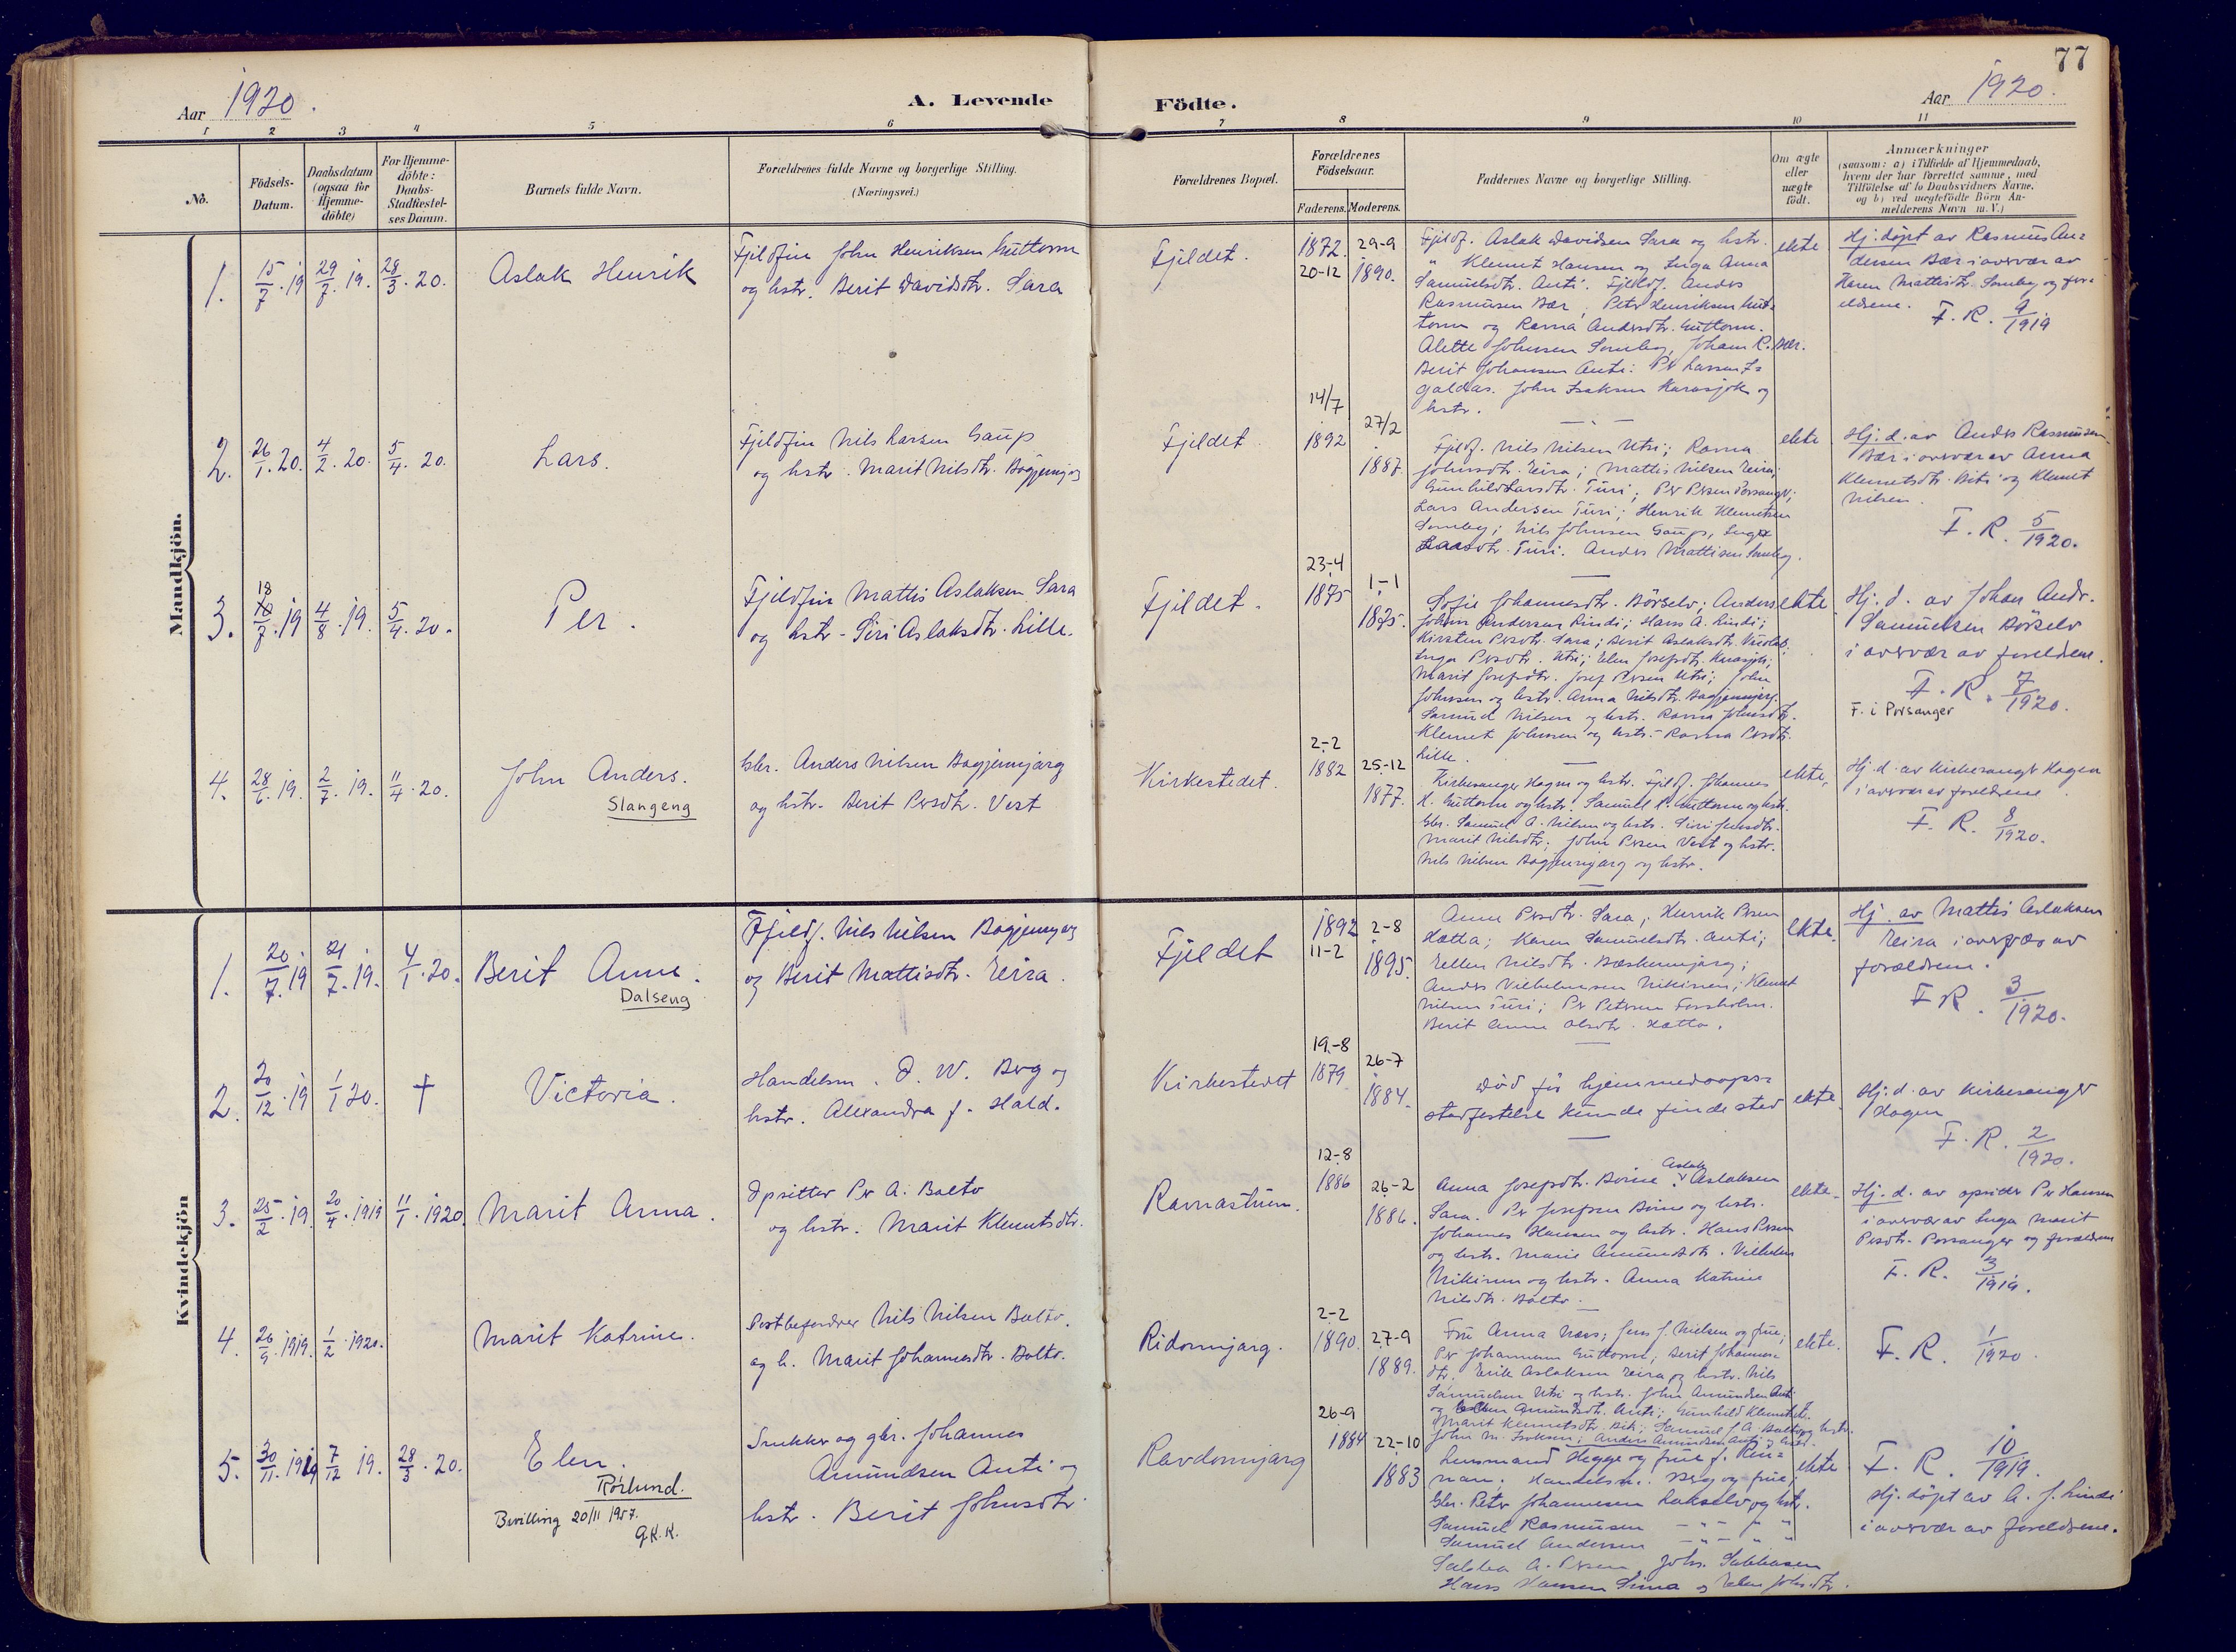 77
Aar 1920.
A. Levende Födte.
Aar 1920.
1 2 3 4 5 6 7 8 9 10 11
No.
Födsels-
Datum.
Daabsdatum
(ogsaa for
Hjemme-
döbte)
For Hjemme-
döbte:
Daabs-
Stadfæstel-
ses Datum.
Barnets fulde Navn.
Forældrenes fulde Navne og borgerlige Stilling.
(Næringsvei.)
Forældrenes Bopæl.
Forældrenes
Födselsaar.
Faderens. Moderens.
Faddernes Navne og borgerlige Stilling.
Om ægte
eller
uægte
födt.
Anmærkninger
(saasom: a) i Tilfælde af Hjemmedaab,
hvem der har forrettet samme, med
Tilföielse af to Daabsvidners Navne.
og b) ved uægtefödte Börn An-
melderens Navn m. V.)
Mandkjön.
1. 15/7. 19 29/7. 19. 28/3. 20.
Aslak Henrik
Fjeldfin John Henriksen Guttorm
og hstr. Berit Davidsdtr. Sara
Fjeldet.
1872. 20-12
29-9 1890.
Fjeldf. Aslak Davidsen Sara og hstr.
" Klemet Hansen og Inga Anna
Samuelsdtr. Anti. Fjeldf. Anders
Rasmusen Bær, Peter Henriksen Gut-
torm og Ravna Andersdtr. Guttorm.
Alette Johnsen Somby, Johan R. Bær.
Berit Johansen Anti. Per Larsen
galdas. John Isaksen Karasjok og
hstr.
ekte
Hj. döpt av Rasmus An-
dersen Bær i overvær av
Karen Mattisdtr. Somby og for-
eldrene.
F. R. 9/1919
2. 26/1. 20. 4/2. 20. 5/4. 20.
Lars.
Fjeldfin Nils Larsen Gaup
og hstr. Marit Nilsdtr. Bågjenjarg
Fjeldet
14/7 1892
27/2 1887.
Fjeldf. Nils Nilsen Utsi; Ravna
Johnsdtr. Eira; Mattis Nilsen Eira;
Gunhild Larsdtr. Turi; Per Persen Porsanger;
Lars Andersen Turi; Henrik Klemetsen
Somby; Nils Johnsen Gaup, Inga
Larsdtr. Turi. Anders Mattisen Somby.
ekte
Hj. d. av Anders Rasmussen
Bær i overvær av Anna
Klemetsdtr. Biti og Klemet
Nilsen.
F. R. 5/1920.
3. 18/7. 19 4/8. 19. 5/4. 20.
Per.
Fjeldfin Mattis Aslaksen Sara
og hstr. Siri Aslaksdtr. Lille.
Fjeldet.
23-4 1875
1-1 1875.
Sofie Johannesdtr. Börselv; Anders
John Andersen Lindi; Hans A. Lindi;
Kirsten Persdtr. Sara; Berit Aslaksdtr.
Inga Persdtr. Utsi; Elen Josefsdtr. Karasjok;
Marit Josefsdtr. Josef Persen Utsi; John
Johnsen og hstr. Anna Nilsdtr. Bagjenjarg.
Samuel Nilsen og hstr. Ravna Johnsdtr.
Klemet Johnsen og hstr. Ravna Persdtr.
Lille.
ekte
Hj. d. av Johan Andr.
Samuelsen Börselv
i overvær av foreldrene.
F. R. 7/1920.
F. i Porsanger
4. 28/6. 19. 2/7. 19. 11/4. 20.
John Anders.
Slangeng
Gbr. Anders Nilsen Bagjenjarg
og hstr. Berit Persdtr. Vest
Kirkestedet.
2-2 1882
25-12 1877.
Kirkesanger Hagen og hstr. Fjeldf. Johannes
K. Guttorm og hstr. Samuel P. Guttorm og hstr.
Gbr. Samuel A. Nilsen og hstr. Siri Jensdtr.
Marit Nilsdtr; John Persen Vest og hstr.
Nils Nilsen Bagjenjarg og hstr.
ekte
Hj. d. av Kirkesanger Hagen
i overvær av foreldrene
F. R. 8/1920.
Kvindekjön
1. 20/7. 19 21/7. 19. 4/1. 20.
Berit Anne.
Dalseng
Fjeldf. Nils Nilsen Bagjenjarg
og Berit Mattisdtr. Eira.
Fjeldet
1892 11-2
2-8 1895.
Anne Persdtr. Sara; Henrik Persen
Hætta; Karen Samuelsdtr. Anti;
Ellen Nilsdtr.
Anders Vilhelmsen Nikinen; Klemet
Nilsen Turi; Per Petersen Forsholm.
Berit Anne Olsdtr. Hætta.
ekte.
Hj. av Mattis Aslaksen
Eira i overvær av
forældrene.
F R. 3/1920.
2. 20/12. 19 1/1 20. †
Victoria.
Handelsm. D. W. Berg og
hstr. Alexandra f. Hald.
Kirkestedet
19-8 1879
26-7 1884.
Död för hjemmedaaps-
stadfestelse kunde finde sted
ekte
Hj. d. av Kirkesanger
Hagen
F. R. 2/1920.
3. 25/2. 19. 20/4. 1919 11/1. 1920
Marit Anna.
Opsitter Per A. Balto
og hstr. Marit Klemetsdtr.
Ravnastuen.
12-8 1886
26-2 1886.
Anna Josefsdtr. Aslak Aslaksen
Sara. Per Josefsen og hstr.
Johannes Hansen og hstr. Hans Persen
og hstr. Marie Amundsdtr. Vilhelm
Nikinen og hstr. Anna Katrine
Nilsdtr. Balto.
ekte.
Hj. d. av opsider Per Hansen
i overvær av Inga Marit
Persdtr. Porsanger og forældrene
F. R. 3/1919.
4. 26/9. 1919. 1/2. 1920.
Marit Katrine.
Postbefordrer Nils Nilsen Balto.
og h. Marit Johannesdtr. Balto.
Ridomjarg.
2-2 1890.
27-9 1889.
Fru Anna Næss; Jens J. Nielsen og frue;
Per Johannesen Guttorm; Berit Johannes-
dtr. Erik Aslaksen Eira og hstr. Nils
Samuelsen Utsi og hstr. John Amundsen Anti
og Ellen Amundsdtr. Anti; Gunhild Klemetsdtr.
Marit Klemetsdtr. Biti; Samuel J. A. Balto og hstr.
John M. Isaksen; Anders Amundsen Anti og hstr.
ekte.
F. R. 1/1920.
5. 30/11. 1919 7/12 19. 28/3. 20.
Elen.
Rörlund.
Bevilling 20/11 1957.
G.K.K.
Snekker og gbr. Johannes
Amundsen Anti og
hstr. Berit Johnsdtr.
Ravdomjarg
26-9 1884
22-10 1883
Lensmand Hegge og frue f.
Handelsm. Berg og frue;
Gbr. Peter Johannesen Lakselv og hstr.
Samuel Rasmusen — " —
Samuel Andersen — " —
Sabba A. Persen Johs. Sabbasen
Hans Hansen Sima og Elen Johsdtr.
ekte
F. R. 10/1919.
Hj. döpt av A. J. Lindi
i overvær av foreldrene.